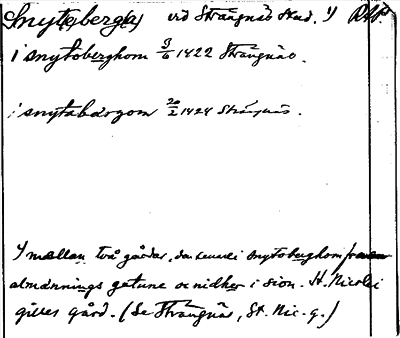 Snyt(o)berg(a) vid Strängnäs stad. 1) RAP.
i snytoberghom 3/6 1422 Strängnäs.
i snytabärgom 20/2 1424 Strängnäs.
1) mællan två gårdar, i snytoberghom
almænnings gatune oc nidher i sion. St. Nicolai
gilles gård. (Se Strängnäs, St. Nic. g.)